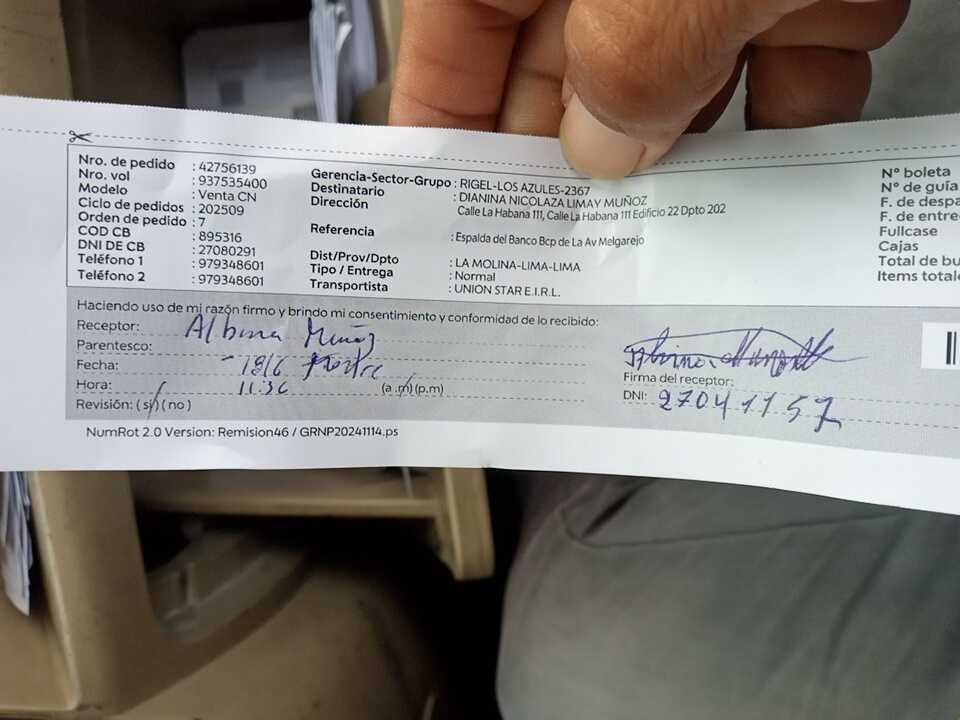 Nro. de pedido : 42756139
Nro. vol : 937535400
Modelo : Venta CN
Ciclo de pedidos : 202509
Orden de pedido : 7
COD CB : 895316
DNI DE CB : 27080291
Teléfono 1 : 979348601
Teléfono 2 : 979348601
Gerencia-Sector-Grupo : RIGEL-LOS AZULES-2367
Destinatario : DIANINA NICOLAZA LIMAY MUÑOZ
Dirección : Calle La Habana 111, Calle La Habana 111 Edificio 22 Dpto 202
Referencia : Espalda del Banco Bcp de La Av Melgarejo
Dist/Prov/Dpto : LA MOLINA-LIMA-LIMA
Tipo / Entrega : Normal
Transportista : UNION STAR E.I.R.L.
N° boleta
N° de guía
F. de
F. de
Fullcase
Cajas
Total de
Items
Haciendo uso de mi razón firmo y brindo mi consentimiento y conformidad de lo recibido:
Receptor: Albina Muñoz
Parentesco:
Fecha: 19/6
Hora: 11.36 (a.m)(p.m)
Revisión: (si)(no)
Firma del receptor:
DNI: 27041157
NumRot 2.0 Version: Remision46 / GRNP20241114.ps